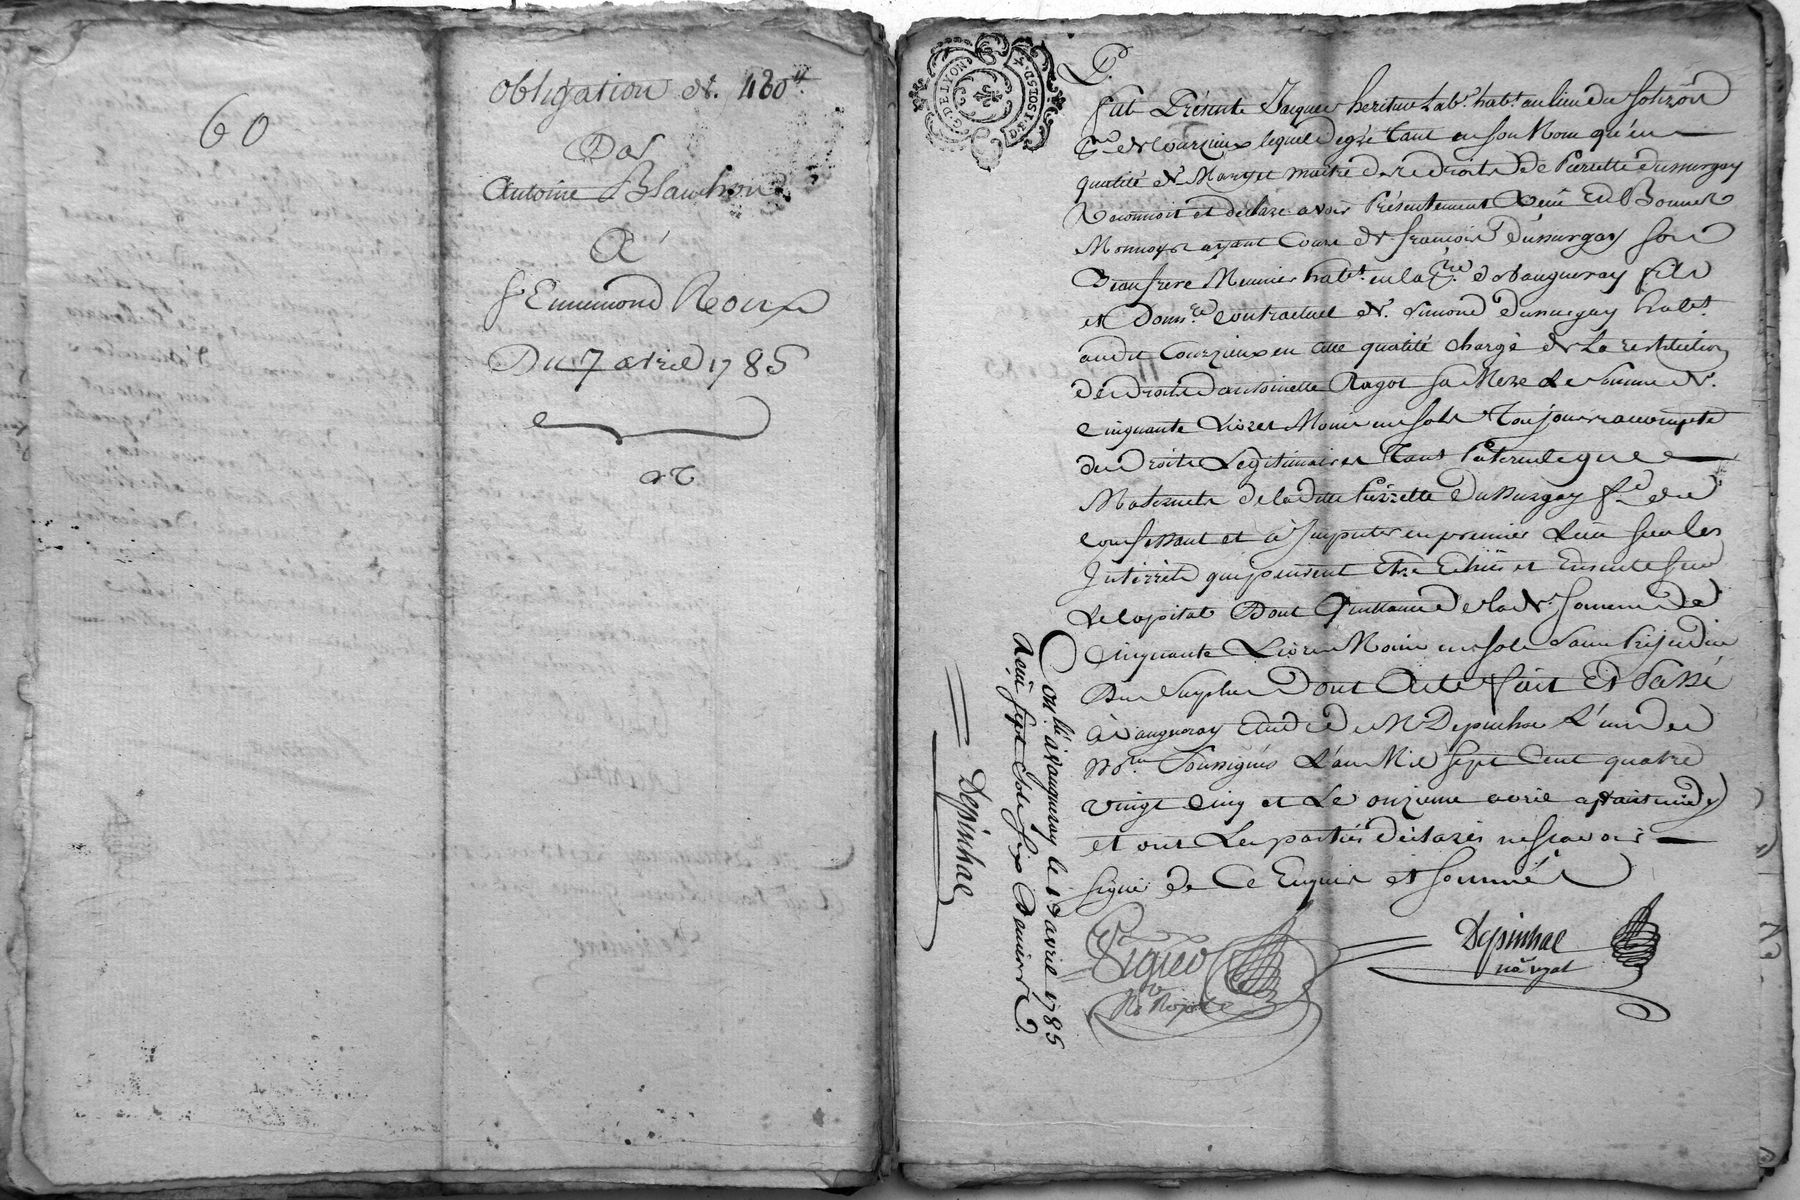 60
Obligation de. 480ᵗᵗ
Par
Antoine Blanchon
A
sʳ Ennemond Roux
Du 7 avril 1785
G. DE LYON
4 DE 1 SOLS D.
P.
fut Présente Jacques heritier Labʳ. habᵗ. au lieu du
Pˢˢᵉ de Courzieux lequel de gré tant en son Nom qu'en
qualité de Mary et maitre des droits de Pierrette Dumurgay
Reconnoit et declare avoir Présentement Receu En Bonnes
Monnoyes ayant Cours de francois Dumurgay son
Beaufrere Meunier habᵗ. en la Pˢˢᵉ de Vaugneray fils
et Donnʳᵉ contractuel de. Dumurgay habᵗ.
audit Courzieux en cette qualité chargé de La restitution
des droits d'antoinette Ragot sa Mere La Somme de.
Cinquante Livres Moins un sols Toujours a compte
des Droits Legitimaires tant Paternels que
Maternels de ladite Pierrette Dumurgay fᵉ du
confessant et a Imputer en premier Lieu sur les
Interrets qui peuvent Etre Echus et Ensuite sur
Le Capital Dont Quittance de lade. somme de
Cinquante Livres Moins un sols sans Prejudice
Du Surplus Dont Acte fait Et Passé
a Vaugneray Etude de Mᵉ Depinhac L'un des
Noʳᵉˢ Soussignés L'an Mil sept Cent quatre
vingt cinq et Le onzieme avril apres midy
et ont Les parties declarés ne scavoir
signé de Ce Enquis et sommés
Depinhac
noʳᵉ royal
Noʳᵉ Royal
Conˡᵉ. a Vaugneray le 18 avril 1785
Receu sept sols six Deniers
Depinhac